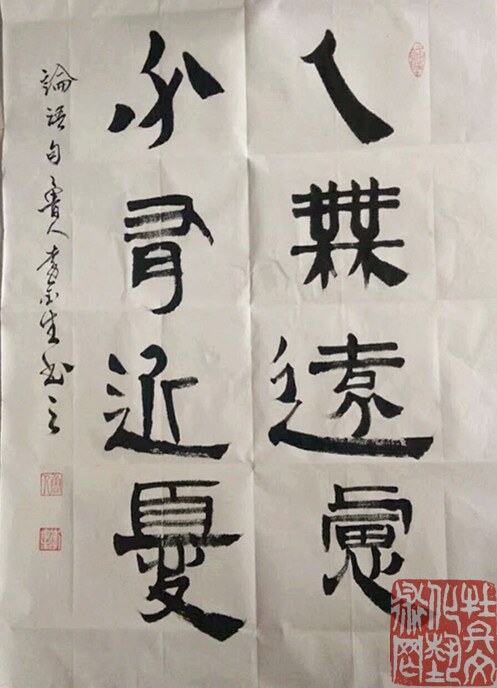 人無遠慮
必有近憂
論語句 魯人李生书之